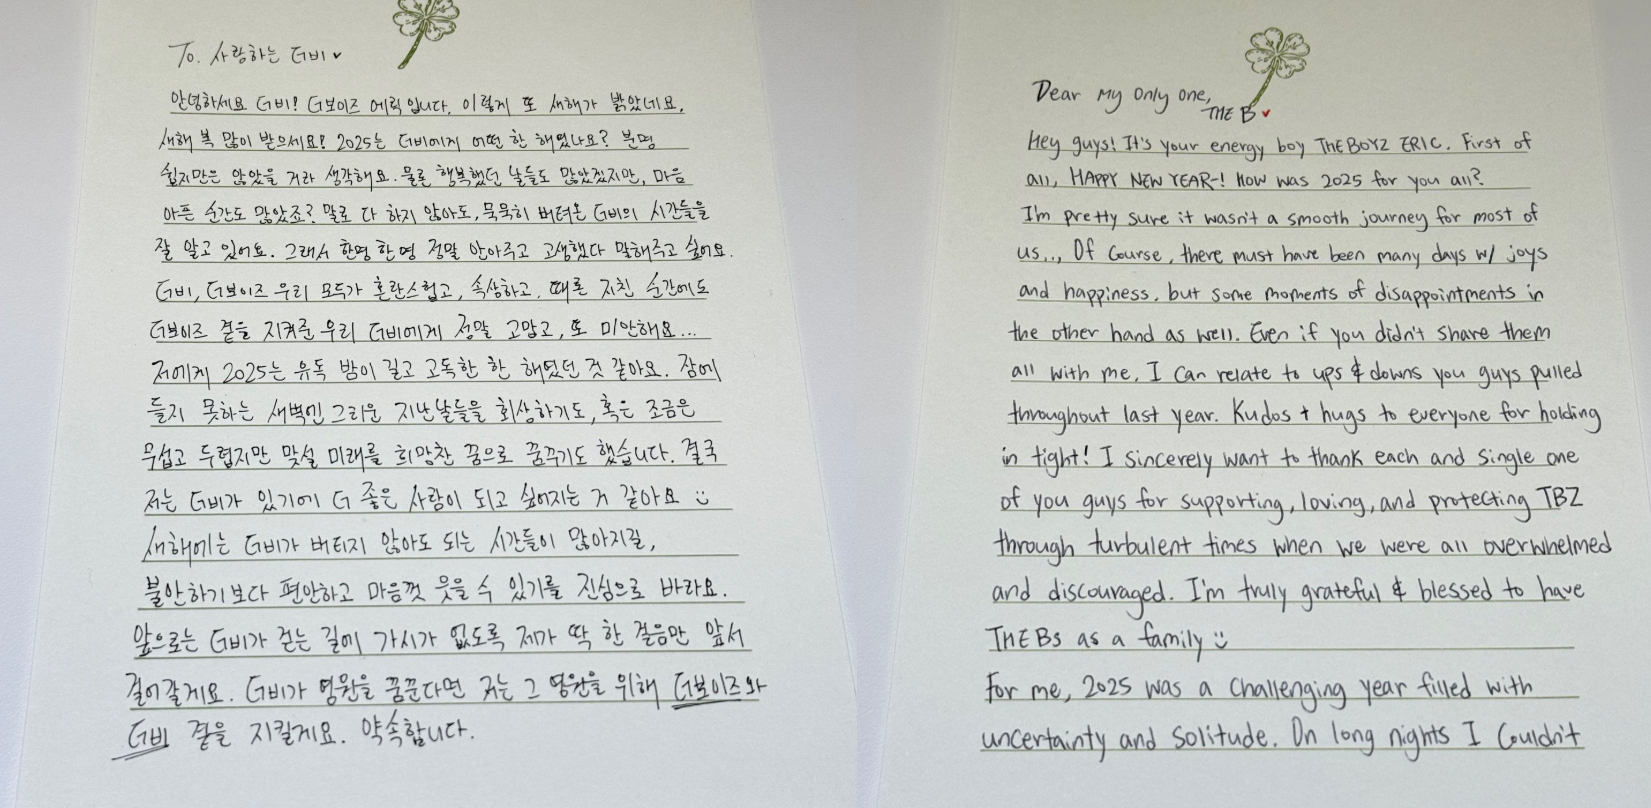 To. 사랑하는 더비♥
안녕하세요 더비! 더보이즈 에릭입니다. 이렇게 또 새해가 밝았네요.
새해 복 많이 받으세요! 2025는 더비에게 어떤 한 해였나요? 분명
쉽지만은 않았을 거라 생각해요. 물론 행복했던 날들도 많았겠지만, 마음
아픈 순간도 많았죠? 말로 다 하지 않아도, 묵묵히 버텨온 더비의 시간들을
잘 알고 있어요. 그래서 한명 한명 정말 안아주고 고생했다 말해주고 싶어요.
더비, 더보이즈 우리 모두가 혼란스럽고, 속상하고, 때론 지친 순간에도
더보이즈 곁을 지켜준 우리 더비에게 정말 고맙고, 또 미안해요...
저에게 2025는 유독 밤이 길고 고독한 한 해였던 것 같아요. 잠에
들지 못하는 새벽엔 그리운 지난날들을 회상하기도, 혹은 조금은
무섭고 두렵지만 맞설 미래를 희망찬 꿈으로 꿈꾸기도 했습니다. 결국
저는 더비가 있기에 더 좋은 사람이 되고 싶어지는 거 같아요 :)
새해에는 더비가 버티지 않아도 되는 시간들이 많아지길,
불안하기보다 편안하고 마음껏 웃을 수 있기를 진심으로 바라요.
앞으로는 더비가 걷는 길에 가시가 없도록 제가 딱 한 걸음만 앞서
걸어갈게요. 더비가 영원을 꿈꾼다면 저는 그 영원을 위해 더보이즈와
더비 곁을 지킬게요. 약속합니다.
Dear My Only One,
THE B♥
Hey guys! It's your energy boy THEBOYZ ERIC. First of
all, HAPPY NEW YEAR~! How was 2025 for you all?
I'm pretty sure it wasn't a smooth journey for most of
us... Of Course, there must have been many days w/ joys
and happiness, but some moments of disappointments in
the other hand as well. Even if you didn't share them
all with me, I can relate to ups & downs you guys pulled
throughout last year. Kudos + hugs to everyone for holding
in tight! I sincerely want to thank each and single one
of you guys for supporting, loving, and protecting TBZ
through turbulent times when we were all overwhelmed
and discouraged. I'm truly grateful & blessed to have
THEBs as a family :)
For me, 2025 was a challenging year filled with
uncertainty and solitude. On long nights I Couldn't